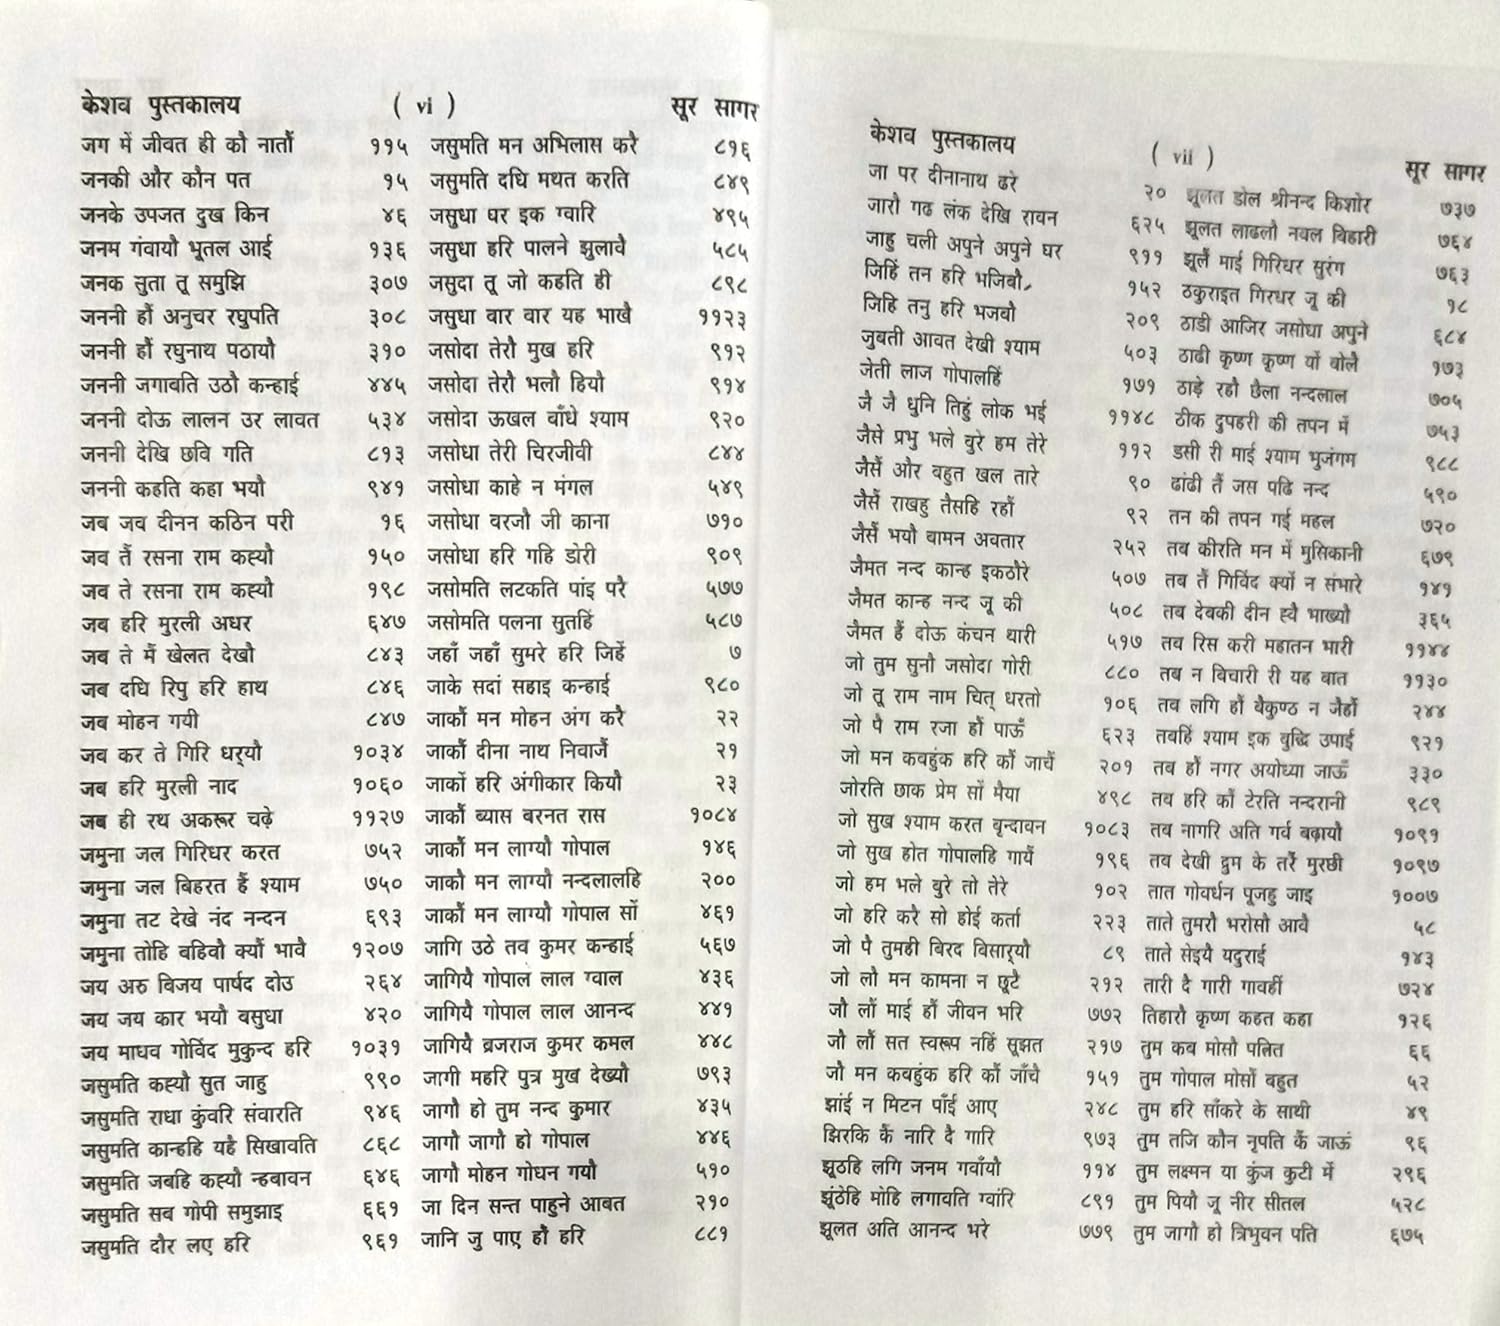 केशव पुस्तकालय ( vi ) सूर सागर
जग में जीवत ही कौ नातौं ११५
जनकी और कौन पत १५
जनके उपजत दुख किन ४६
जनम गंवायौ भूतल आई १३६
जनक सुता तू समुझि ३०७
जननी हौं अनुचर रघुपति ३०८
जननी हौं रघुनाथ पठायौ ३१०
जननी जगावति उठौ कन्हाई ४४५
जननी दोऊ लालन उर लावत ५३४
जननी देखि छवि गति ८१३
जननी कहति कहा भयौ ९४१
जब जव दीनन कठिन परी १६
जब तैं रसना राम कह्यौ १५०
जब ते रसना राम कह्यौ १९८
जब हरि मुरली अधर ६४७
जब ते मैं खेलत देखौ ८४३
जब दधि रिपु हरि हाथ ८४६
जब मोहन गयी ८४७
जब कर ते गिरि धर्‌यौ १०३४
जब हरि मुरली नाद १०६०
जब ही रथ अकरूर चढ़े ११२७
जमुना जल गिरिधर करत ७५२
जमुना जल बिहरत हैं श्याम ७५०
जमुना तट देखे नंद नन्दन ६९३
जमुना तोहि बहिवौ क्यौं भावै १२०७
जय अरु विजय पार्षद दोउ २६४
जय जय कार भयौ बसुधा ४२०
जय माधव गोविंद मुकुन्द हरि १०३१
जसुमति कह्यौ सुत जाहु ९९०
जसुमति राधा कुंवरि संवारति ९४६
जसुमति कान्हहि यहै सिखावति ८६८
जसुमति जबहि कह्यौ न्हबावन ६४६
जसुमति सब गोपी समुझाइ ६६१
जसुमति दौर लए हरि ९६१
जसुमति मन अभिलास करै ८१६
जसुमति दधि मथत करति ८४९
जसुधा घर इक ग्वारि ४९५
जसुधा हरि पालने झुलावै ५८५
जसुदा तू जो कहति ही ८९८
जसुधा वार वार यह भाखै ११२३
जसोदा तेरौ मुख हरि ९१२
जसोदा तेरौ भलौ हियौ ९१४
जसोदा ऊखल बाँधे श्याम ९२०
जसोधा तेरी चिरजीवी ८४४
जसोधा काहे न मंगल ५४९
जसोधा वरजौ जी काना ७१०
जसोधा हरि गहि डोरी ९०९
जसोमति लटकति पांइ परै ५७७
जसोमति पलना सुतहिं ५८७
जहाँ जहाँ सुमरे हरि जिहें ७
जाके सदां सहाइ कन्हाई ९८०
जाकौं मन मोहन अंग करै २२
जाकौं दीना नाथ निवाजैं २१
जाकों हरि अंगीकार कियौ २३
जाकौं ब्यास बरनत रास १०८४
जाकौं मन लाग्यौ गोपाल १४६
जाकौ मन लाग्यौ नन्दलालहि २००
जाकौं मन लाग्यौ गोपाल सों ४६१
जागि उठे तव कुमर कन्हाई ५६७
जागियै गोपाल लाल ग्वाल ४३६
जागियै गोपाल लाल आनन्द ४४१
जागियै ब्रजराज कुमर कमल ४४८
जागी महरि पुत्र मुख देख्यौ ७९३
जागौ हो तुम नन्द कुमार ४३५
जागौ जागौ हो गोपाल ४४६
जागौ मोहन गोधन गयौ ५१०
जा दिन सन्त पाहुने आबत २१०
जानि जु पाए हौं हरि ८८१
केशव पुस्तकालय ( vii ) सूर सागर
जा पर दीनानाथ ढरे २०
जारौ गढ लंक देखि रावन ६२५
जाहु चली अपुने अपुने घर ९११
जिहिं तन हरि भजिबौ, १५२
जिहि तनु हरि भजबौ २०९
जुबती आवत देखी श्याम ५०३
जेती लाज गोपालहिं १७१
जै जै धुनि तिहुं लोक भई ११४८
जैसे प्रभु भले बुरे हम तेरे ११२
जैसैं और बहुत खल तारे ९०
जैसैं राखहु तैसहि रहौं ९२
जैसैं भयौ बामन अवतार २५२
जैमत नन्द कान्ह इकठौरे ५०७
जैमत कान्ह नन्द जू की ५०८
जैमत हैं दोऊ कंचन थारी ५१७
जो तुम सुनौ जसोदा गोरी ८८०
जो तू राम नाम चित् धरतो १०६
जो पै राम रजा हौं पाऊँ ६२३
जो मन कबहुंक हरि कौं जाचैं २०१
जोरति छाक प्रेम सों मैया ४९८
जो सुख श्याम करत बृन्दावन १०८३
जो सुख होत गोपालहि गायैं १९६
जो हम भले बुरे तो तेरे १०२
जो हरि करै सो होई कर्ता २२३
जो पै तुमही बिरद विसार्‌यौ ८९
जो लौ मन कामना न छूटै २१२
जौ लौं माई हौं जीवन भरि ७७२
जौ लौं सत स्वरूप नहिं सूझत २१७
जौ मन कबहुंक हरि कौं जाँचै १५१
झांई न मिटन पाँई आए २४८
झिरकि कैं नारि दै गारि ९७३
झूठहि लगि जनम गवाँयौ ११४
झूंठेहि मोहि लगावति ग्वांरि ८९१
झूलत अति आनन्द भरे ७७९
झूलत डोल श्रीनन्द किशोर ७३७
झूलत लाढलौ नवल विहारी ७६४
झूलैं माई गिरिधर सुरंग ७६३
ठकुराइत गिरधर जू की १८
ठाडी आजिर जसोधा अपुने ६८४
ठाढी कृष्ण कृष्ण यों बोलै १७३
ठाड़े रहौ छैला नन्दलाल ७०५
ठीक दुपहरी की तपन में ७५३
डसी री माई श्याम भुजंगम ९८८
ढांढी तैं जस पढि नन्द ५९०
तन की तपन गई महल ७२०
तब कीरति मन में मुसिकानी ६७९
तब तैं गिविंद क्यों न संभारे १४१
तब देवकी दीन ह्वै भाख्यौ ३६५
तब रिस करी महातन भारी ११४४
तब न बिचारी री यह बात ११३०
तब लगि हौं बैकुण्ठ न जैहौं २४४
तबहिं श्याम इक बुद्धि उपाई ९२१
तब हौं नगर अयोध्या जाऊँ ३३०
तब हरि कौं टेरति नन्दरानी ९८९
तब नागरि अति गर्व बढ़ायौ १०९१
तब देखी द्रुम के तरैं मुरछी १०९७
तात गोवर्धन पूजहु जाइ १००७
ताते तुमरौ भरोसौ आवै ५८
ताते सेइयै यदुराई १४३
तारी दै गारी गावहीं ७२४
तिहारौ कृष्ण कहत कहा १२६
तुम कब मोसौ पतित ६६
तुम गोपाल मोसों बहुत ५२
तुम हरि साँकरे के साथी ४९
तुम तजि कौन नृपति कैं जाऊं ९६
तुम लक्ष्मन या कुंज कुटी में २९६
तुम पियौ जू नीर सीतल ५२८
तुम जागौ हो त्रिभुवन पति ६७५